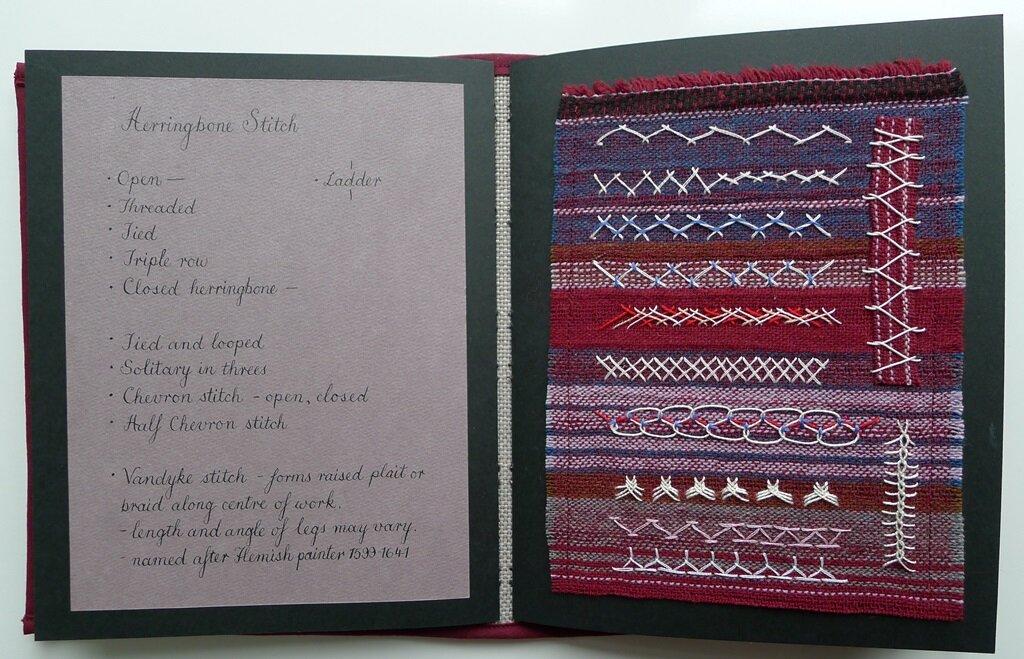 Herringbone Stitch
· Open —
· Ladder
· Threaded
· Tied
· Triple row
· Closed herringbone —
· Tied and looped
· Solitary in threes
· Chevron stitch - open, closed
· Half Chevron stitch
· Vandyke stitch - forms raised plait or
braid along centre of work.
- length and angle of legs may vary.
- named after Flemish painter 1599-1641